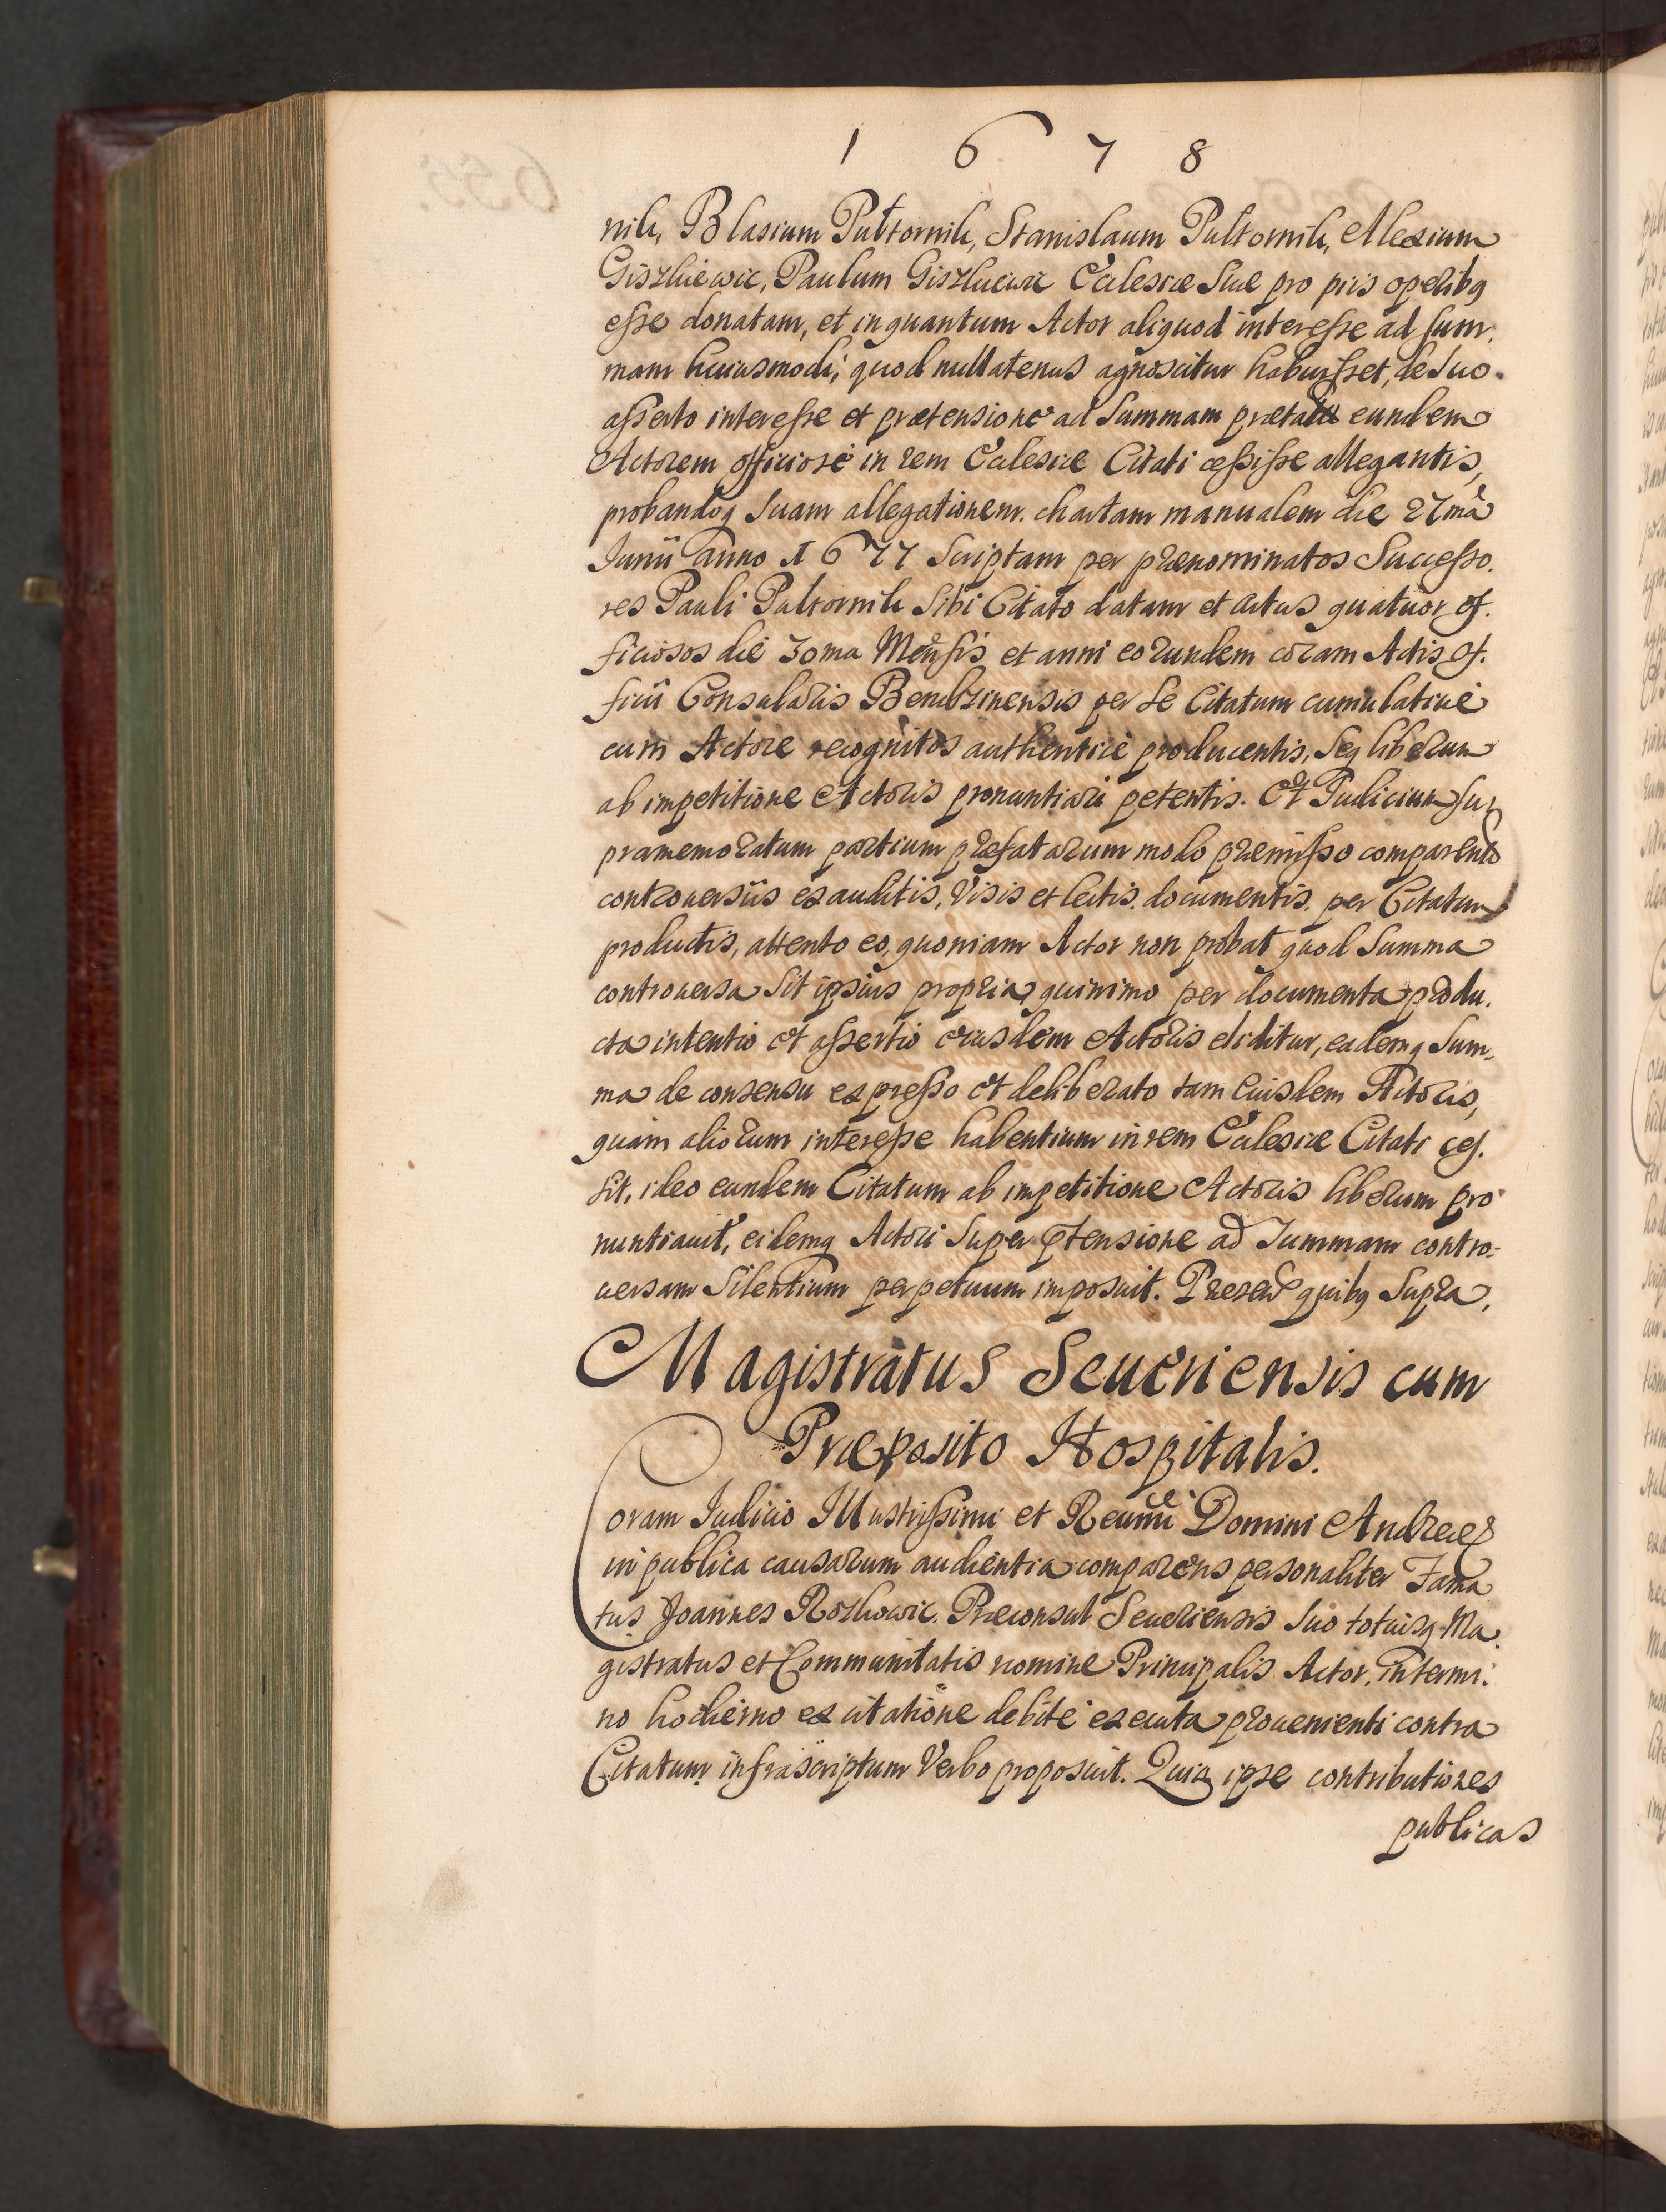 1 6 7 8
nik, Blasium Pultornik, Stanislaum Pultornik, Alexium
Giszkiewic, Paulum Giszkiewic Ecclesiæ suæ pro piis operibq
esse donatam, et inquantum Actor aliquod interesse ad sum.
mam huiusmodi, quod nullatenus agnoscitur habuisset, de suo
asserto interesse et prætensione ad summam prætactā eundem
Actorem officiose in rem Ecclesiæ Citati cessisse allegantis,
probandoq suam allegationem. chartam manualem die 27mâ
Junii anno 1677 scriptam per prænominatos Successo.
res Pauli Pultornik sibi Citato datam et actus quatuor of.
ficiosos die 30ma Mensis et anni eorundem coram Actis of.
ficii Consularis Bendzinensis per se Citatum cumulativè
cum Actore recognitos authenticè producentis, seq liberum
ab impetitione Actoris pronuntiari petentis. Et Judicium su
pramemoratum partium præfatarum modo præmisso comparentū
controversiis exauditis, visis et lectis documentis per Citatum
productis, attento eo, quoniam Actor non probat quod summa
controuersa sit ipsius propria, quinimo per documenta produ.
cta intentio et assertio eiusdem Actoris eliditur, eademq sum,
ma de consensu expresso et deliberato tam eiusdem Actoris,
quàm aliorum interesse habentium in rem Ecclesiæ Citati ces.
sit, ideo eundem Citatum ab impetitione Actoris liberum pro
nuntiauit, eidemq Actori super ptensione ad summam contro:
uersam silentium perpetuum imposuit. Præsen quibq supra,
Magistratus Seueriensis cum
Præposito Hospitalis.
Coram Judicio Illustrissimi et Reumi Domini Andreæ
in publica causarum audientia comparens personaliter Fama
tus Joannes Rozkowic Præconsul Seueriensis suo totiusq Ma
gistratus et Communitatis nomine Principalis Actor, in termi.
no hodierno ex citatione debitè executa prouenienti contra
Citatum infrascriptum Verbo proposuit. Quia ipse contributiones
publicas